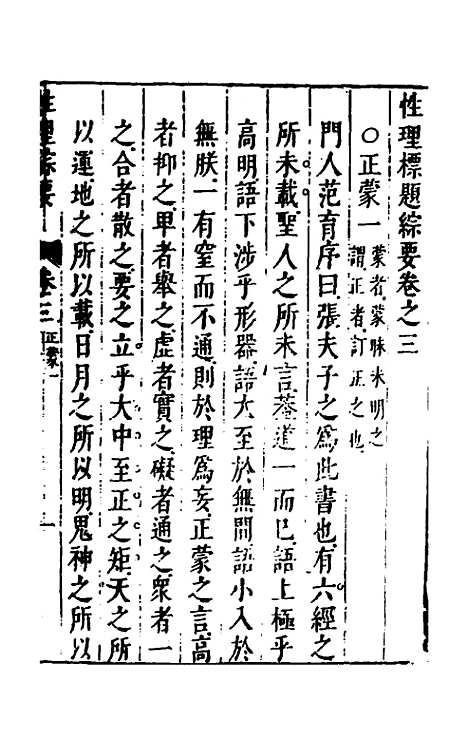 性理標題綜要卷之三
○正蒙一
蒙者蒙昧未明之
謂正者訂正之也
門人范育序曰張夫子之爲此書也有六經之
所未載聖人之所未言蓋道一而已語上極乎
高明語下涉乎形器語大至於無間語小入於
無朕一有窒而不通則於理爲妄正蒙之言高
者抑之卑者舉之虛者實之礙者通之衆者一
之合者散之要之立乎大中至正之矩天之所
以運地之所以載日月之所以明鬼神之所以
性理綜要
卷三
正蒙一
一